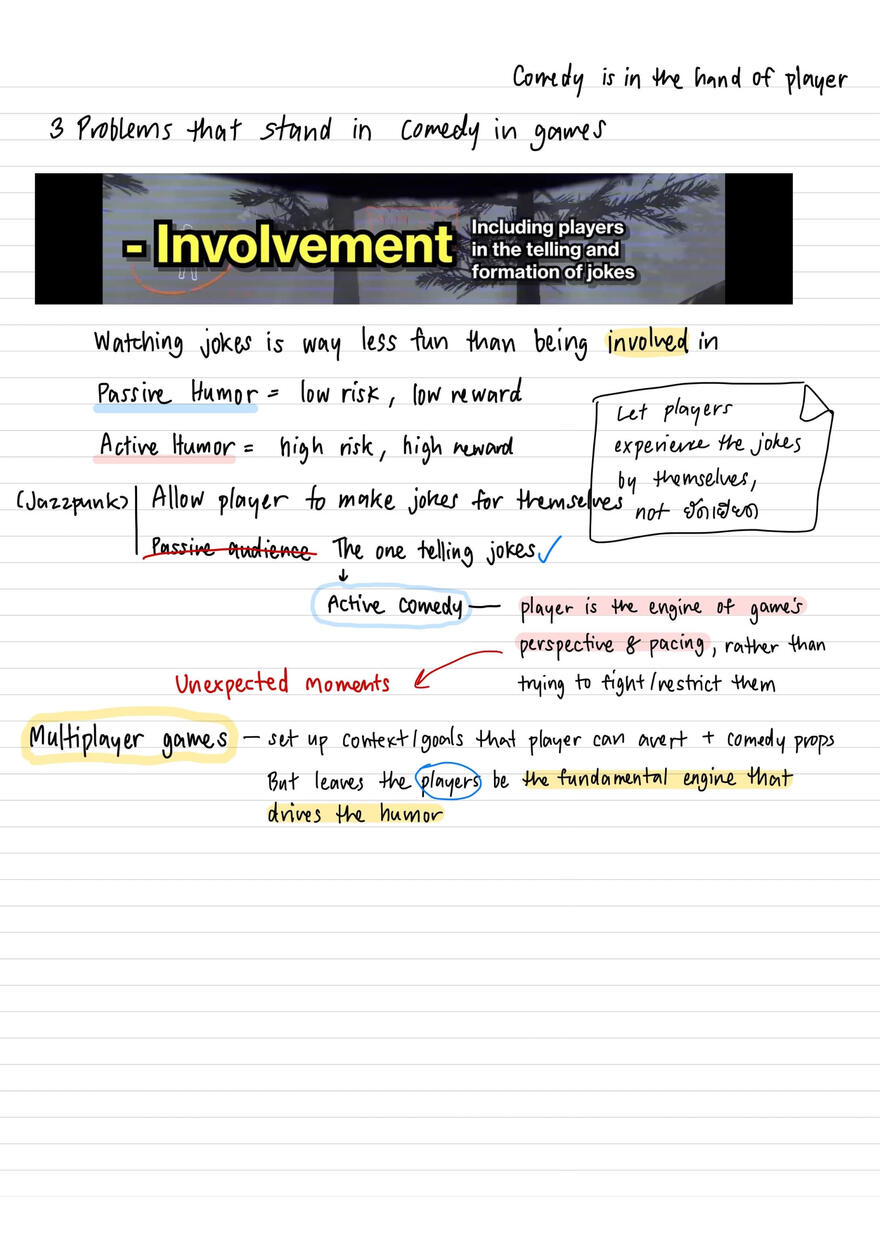 Comedy is in the hand of player
3 Problems that stand in comedy in games
- Involvement
Including players
in the telling and
formation of jokes
Watching jokes is way less fun than being involved in
Passive Humor = low risk, low reward
Active Humor = high risk, high reward
Let players
experience the jokes
by themselves,
not ยัดเยียด
(Jazzpunk) Allow player to make jokes for themselves
Passive audience The one telling jokes ✓
↓
Active comedy — player is the engine of game's
perspective & pacing, rather than
trying to fight/restrict them
Unexpected moments
Multiplayer games — set up context/goals that player can avert + comedy props
But leaves the players be the fundamental engine that
drives the humor